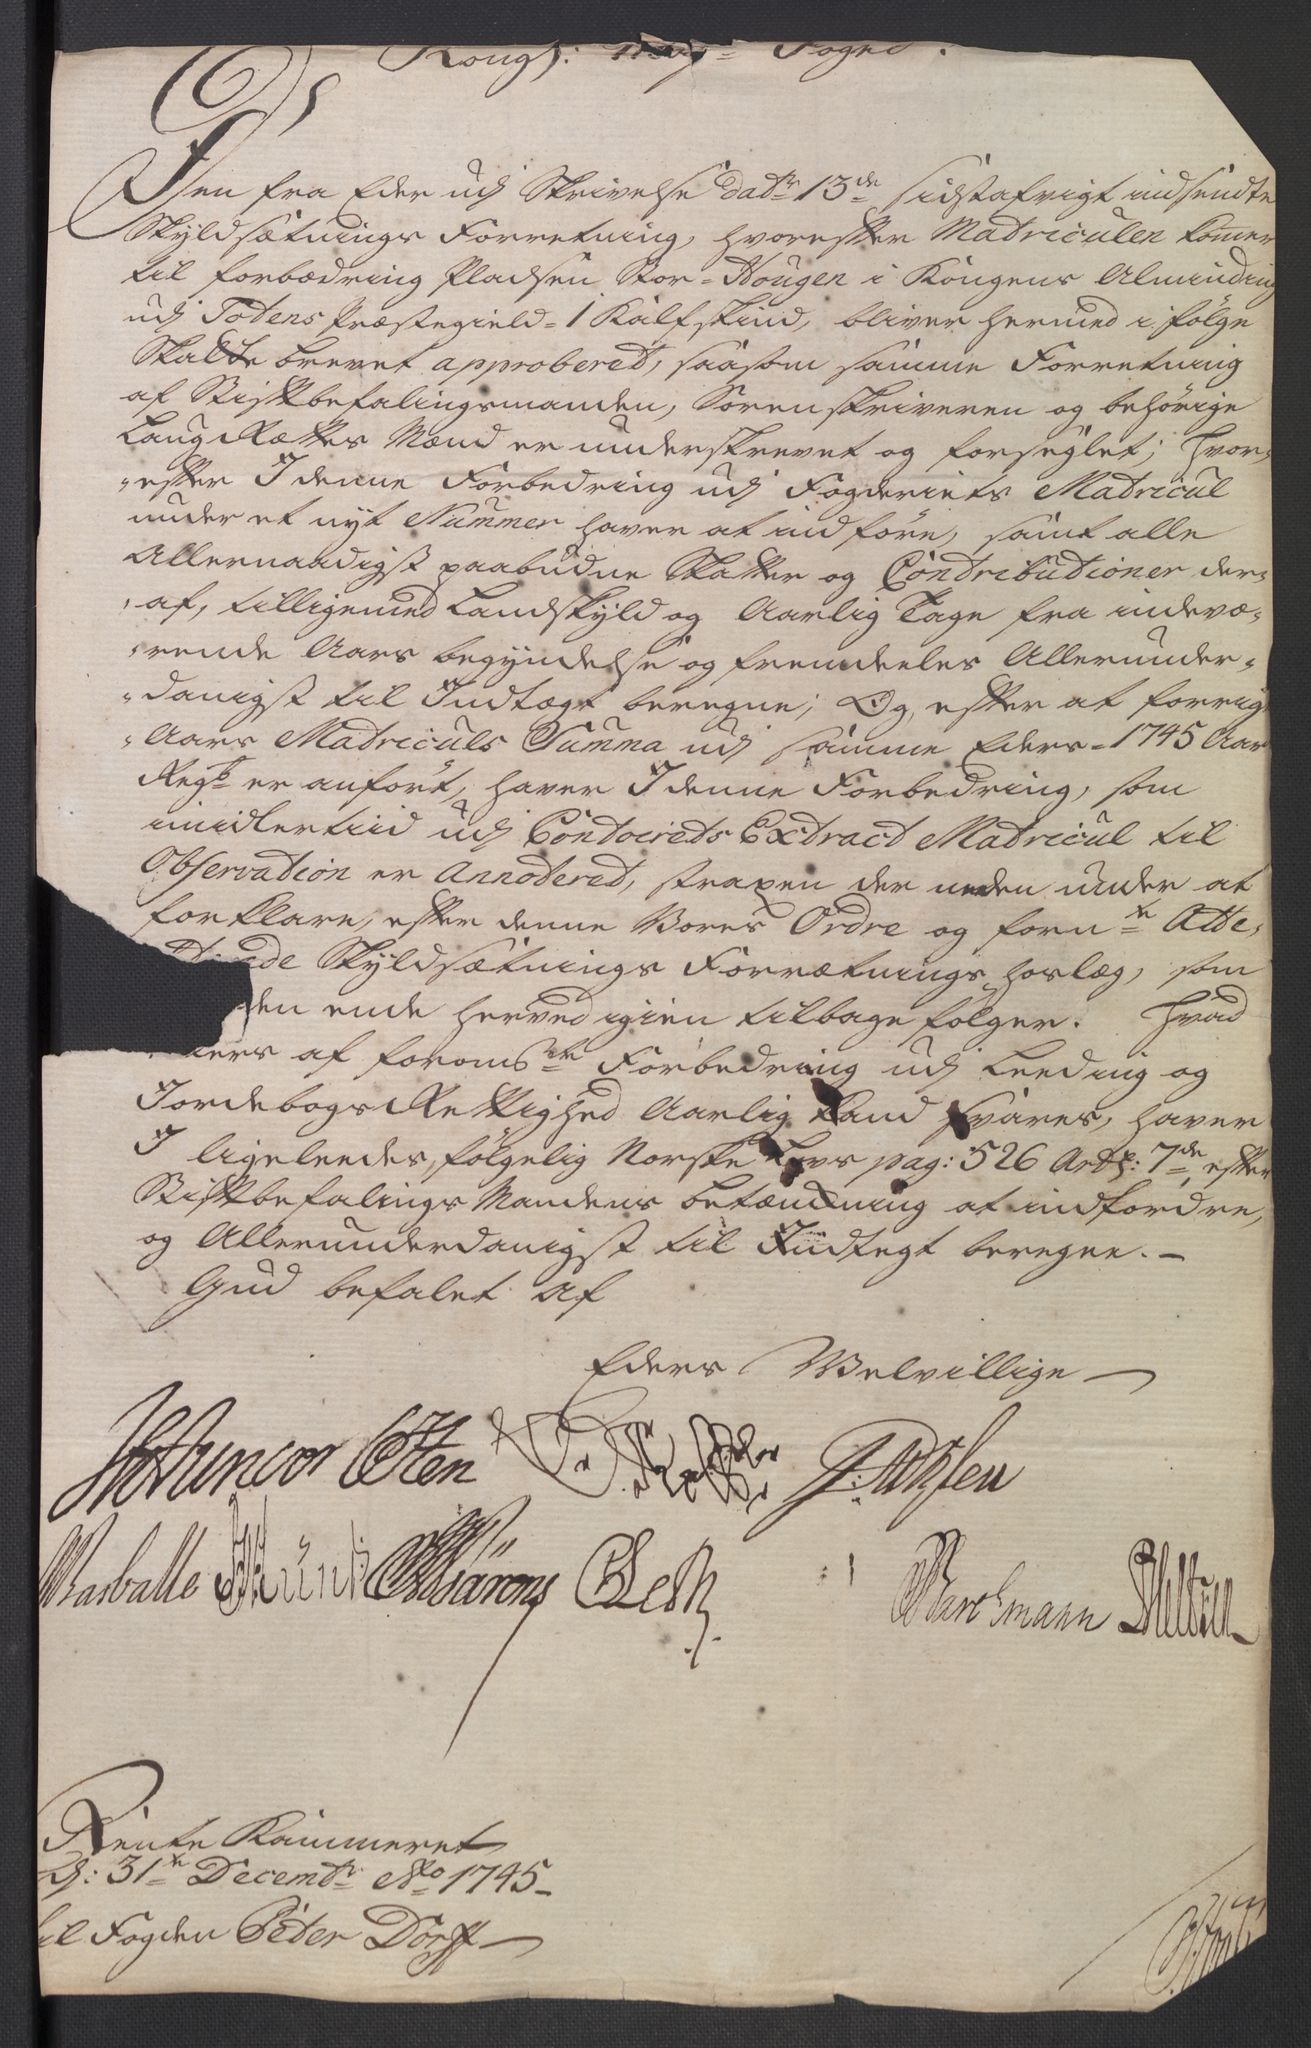 Kongl: May: Foged.
Den fra Eder udj Skrivelse dat: 13de sidstafvigt indsendte
Skyldsætnings Forretning, hvorefter Matriculen kommer
til forbedring Pladsen Stor-Hougen i Kongens Alminding
udj Totens Præstegield = 1 Kalfskind, bliver hermed i følge
Skatte brevet approberet, saasom samme Forretning
af Stiftbefalingsmanden, Sorenskriveren og behörige
Laug Rættes Mænd er underskrevet og forseglet; Hvor-
-efter I denne Forbedring udj Fogderiets Matricul
under et nyt Nummer haver at indföre, samt alle
Allernaadigst paabudne Skatter og Contributioner der-
-af, tilligemed Landskyld og Aarlig Tage fra indevæ-
-rende Aars begyndelse og fremdeeles Allerunder-
-danigst til Indtægt beregne; Og, efter at forrige
Aars Matriculs Summa udj samme Eders = 1745 Aars
Regsk er anfört, haver I denne Forbedring, som
imidlertiid udj Contoirets Extract Matricul til
Observation er Annoteret, straxen der neden under at
forklare, efter denne Vores Ordre og forn:te Atte-
Skyldsætnings Forrætnings hoslæg, som
den ende herved igien tilbage følger. Hvad
ellers af foromrte Forbedring udj Leeding og
Jordebogs Rettighed Aarlig kand svares, haver
I ligeleedes, følgelig Norske Lovs pag: 526 Art: 7de, efter
Stiftbefalings Mandens betænkning at indfordre,
og Allerunderdanigst til Indtegt beregne.-
Gud befalet af
Eders Velvillige
Otten
Rasballe
Barchmann
Rente Kammeret
d: 31te Decembr Ao 1745-
til Fogden Peter Dorff